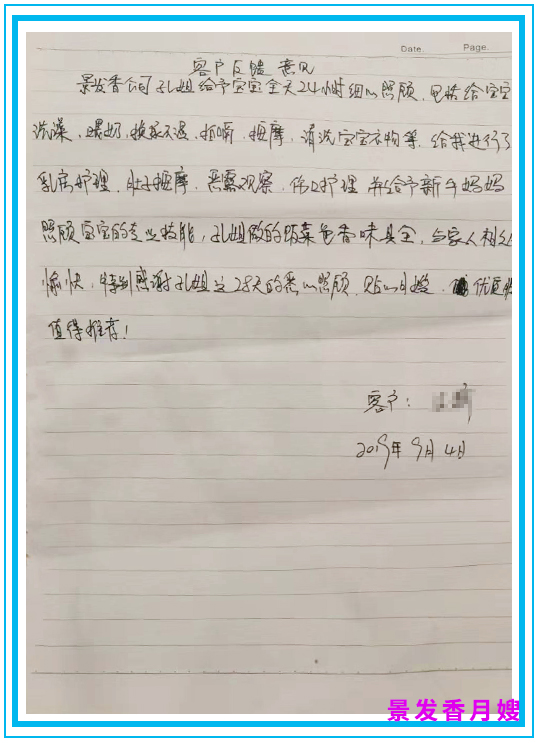 Date.    Page.
客户反馈意见
景发香公司孔姐给予宝宝全天24小时细心照顾，包括给宝宝
洗澡，喂奶，换尿不湿，拍嗝，按摩，清洗宝宝衣物等，给我进行了
乳房护理，肚子按摩，恶露观察，伤口护理 并给予新手妈妈
照顾宝宝的专业技能，孔姐做的饭菜色香味具全，与家人相处
愉快，特别感谢孔姐这28天的悉心照顾，贴心月嫂，优质
值得推荐！
客户：
2019年9月4日
景发香月嫂